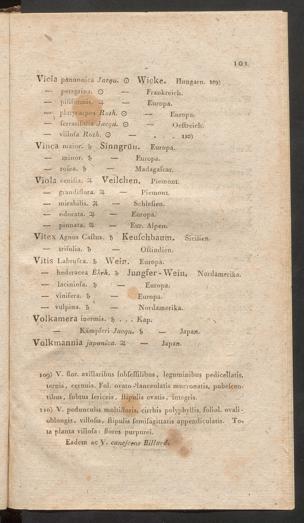 101
Vicia pannonica Jacqu. ☉ Wicke. Hungarn. 109)
— peregrina. ☉ — Frankreich.
— pisiformis. ♃ — Europa.
— platycarpos Roth. ☉ — Europa.
— serratifolia Jacqu. ☉ — Oestreich.
— villosa Roth. ☉ — . . 110)
Vinca maior. ♄ Sinngrün. Europa.
— minor. ♄ — Europa.
— rosea. ♄ — Madagascar.
Viola cenisia. ♃ Veilchen. Piemont.
— grandiflora. ♃ — Piemont.
— mirabilis. ♃ — Schlesien.
— odorata. ♃ — Europa.
— pinnata. ♃ — Eur. Alpen.
Vitex Agnus Castus. ♄ Keuschbaum. Sicilien.
— trifolia. ♄ — Ostindien.
Vitis Labrusca. ♄ Wein. Europa.
— hederacea Ehrh. ♄ Jungfer-Wein. Nordamerika.
— laciniosa. ♄ — Europa.
— vinifera. ♄ — Europa.
— vulpina. ♄ — Nordamerika.
Volkamera inermis. ♄ . . Kap.
— Kämpferi Jacqu. ♄ — Japan.
Volkmannia japanica. ♃ — Japan.
109) V. flor. axillaribus subsessilibus, leguminibus pedicellatis,
ternis, cernuis. Fol. ovato-lanceolatis mucronatis, pubescen-
tibus, subtus sericeis, stipulis ovatis, integris.
110) V. pedunculis multifloris, cirrhis polyphyllis, foliol. ovali-
oblongis, villosis, stipulis semisagittatis appendiculatis. To-
ta planta villosa: flores purpurei.
Eadem ac V. canescens Billard.